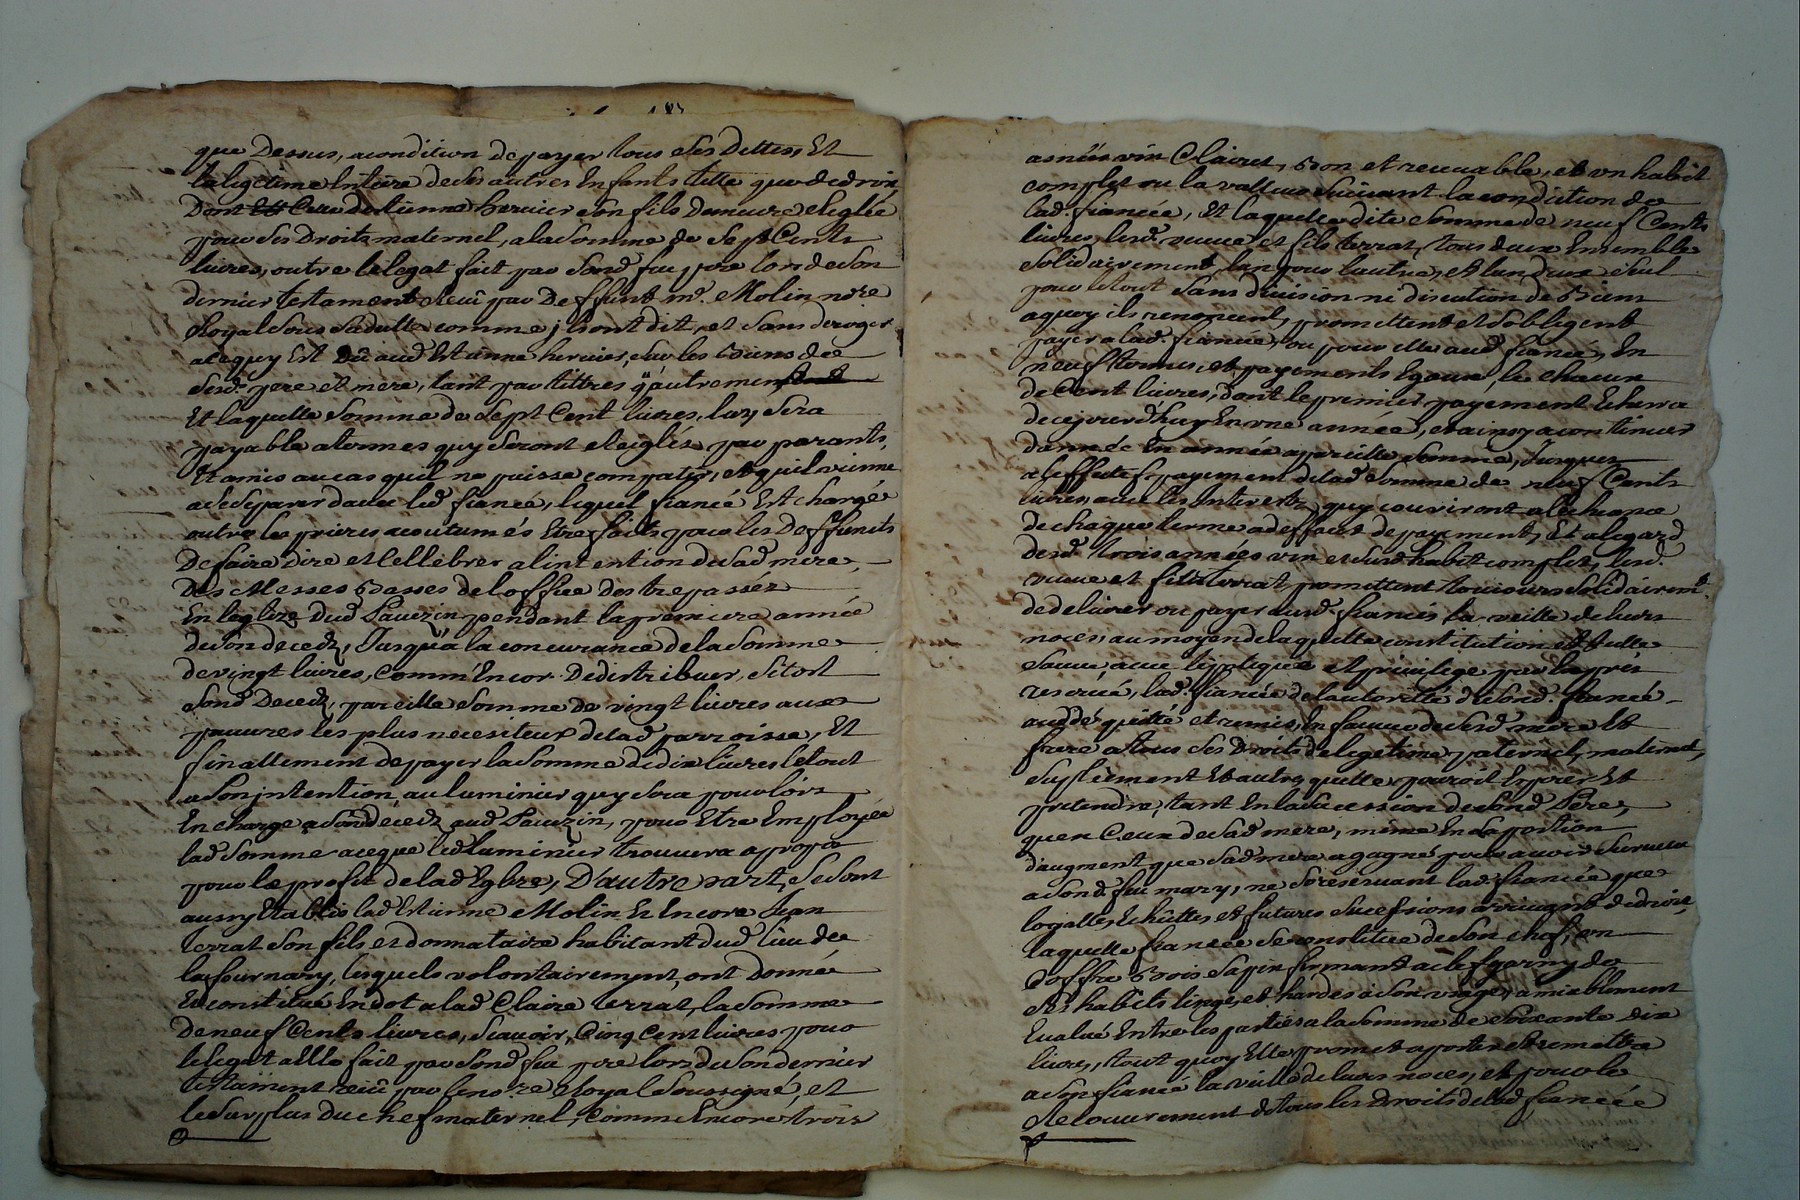 que Dessus, acondition de payer tous Ses Dettes, Et
la legitime Entiere de Ses autres Enfants telle que de droit,
Dont Cette d'Estienne hervier Son fils demeure Reglée
pour Ses Droits maternel, a la Somme de Sept Cents
livres, outre le legat fait par Sond. feu pere lors de Son
dernier testament Receû par Deffunt mr. Molin nore
Royal Sous Sa datte comme jls ont dit, et Sans deroger
a ce quy Est dû aud. Estienne hervier, Sur les Biens de
Sesd. pere et mere, tant par tittres qu'autrement
Et laquelle Somme de Sept Cent livres, luy Sera
payable a termes quy Seront Reiglés par parants,
Et amis au cas qu'il ne puisse compatir, et qu'il vienne
a Se Separer d'avec led. fiancé, lequel fiancé Est chargé
outre les prieres acoutumés Etre faits pour les Deffunts
De faire dire et Cellebrer a l'intention de Sad. mere,
Des Messes Basses de l'office des trepassés
En leglize dud. Pauzin pendant la premiere année
de Son decedz, Jusqu'à la concurance de la Somme
de vingt livres, Comm'Encor De distribuer, Sitost
Sond. Decedz, pareille Somme de vingt livres aux
pauvres les plus necesiteux de lad. parroisse, Et
finallement de payer la Somme de dix livres le tout
a Son jntention, au luminier quy Sera pour lors
En charge a Sond. decedz aud. Pauzin, pour Etre Employée
lad. Somme a ce que led. luminier trouvera a propos
pour le profit de lad. Eglise, D'autre part, Se Sont
aussy Etablis lad. Estienne Molin Et Encore Jean
Terrat Son fils et donnataire habitant dud. lieu de
la fournary, lesquels volontairement, ont donné
Et constitué En dot a lad. Claire terrat, la Somme
De neuf Cents livres, Scavoir, Cinq Cent livres pour
le legat a Elle fait par Sond. feu pere lors de Son dernier
testament Receû par le nore Royal Soussigné, et
le Surplus du chef maternel, Comme Encore trois
asnées vin Clairet, Bon et recevable, et vn habit
complet ou la valleur Suivant la condiction de
lad. fiancée, Et laquelle dite Somme de neuf Cents
livres, lesd. veuve et fils terrat, tous deux Ensemble
Solidairement, l'un pour l'autre, et l'un d'eux Seul
pour le tout Sans division ni discution de Biens
a quoy ils renoncent, promettent et S'obligent
payer a lad. fiancée, ou pour elle aud. fiancé, En
neuf termes, et payements Egaux, de chacun
de Cent livres, dont le premier payement Echerra
de cejourd'huy En vne année, et ainsy a continuer
d'année En année a pareille Somme, Jusques
a l'effectif payement de lad. Somme de neuf Cents
livres, avec les interests, quy couriront a l'echeance
de chaque terme a deffaut de payement, Et a legard
desd. trois années vin et dud. habit complet, lesd.
veuve et fils terrat promettent toujours Solidairemt.
de delivrer ou payer ausd. fiancés la veille de leurs
noces, au moyen de laquelle constitution Et Icelle
Sauve avec hypoteque et privilege par Expres
reservée, lad. fiancée de l'autorité de Sond. fiancé
a cedé quitté et remis, En faveur de Sesd. mere Et
frere a tous Ses Droits de legitime paternel, maternel,
Suplement Et autre quelle pouroit Esperer Et
pretendre, tant En la Sucession de Sond. Pere,
qu'en Ceux de Sad. mere, même En Sa portion
d'augment que Sad. mere a gagné pour avoir Survecu
a Sond. feu mary, ne Se reservant lad. fiancée que
loyalles Echûttes et futures Sucessions arrivant de droit,
laquelle fiancée Se constitue de Son chef, vn
Coffre Bois Sapin fermant a clef garny de
Ses habits linge, et hardes a Son vsage, amiablement
Evalué Entre les parties a la Somme de Soixante dix
livres, tout quoy Elle promet aporter Et remettre
a Son fiancé la veille de leurs noces, et pour le
Recouvrement de tous les Droits de lad. fiancée